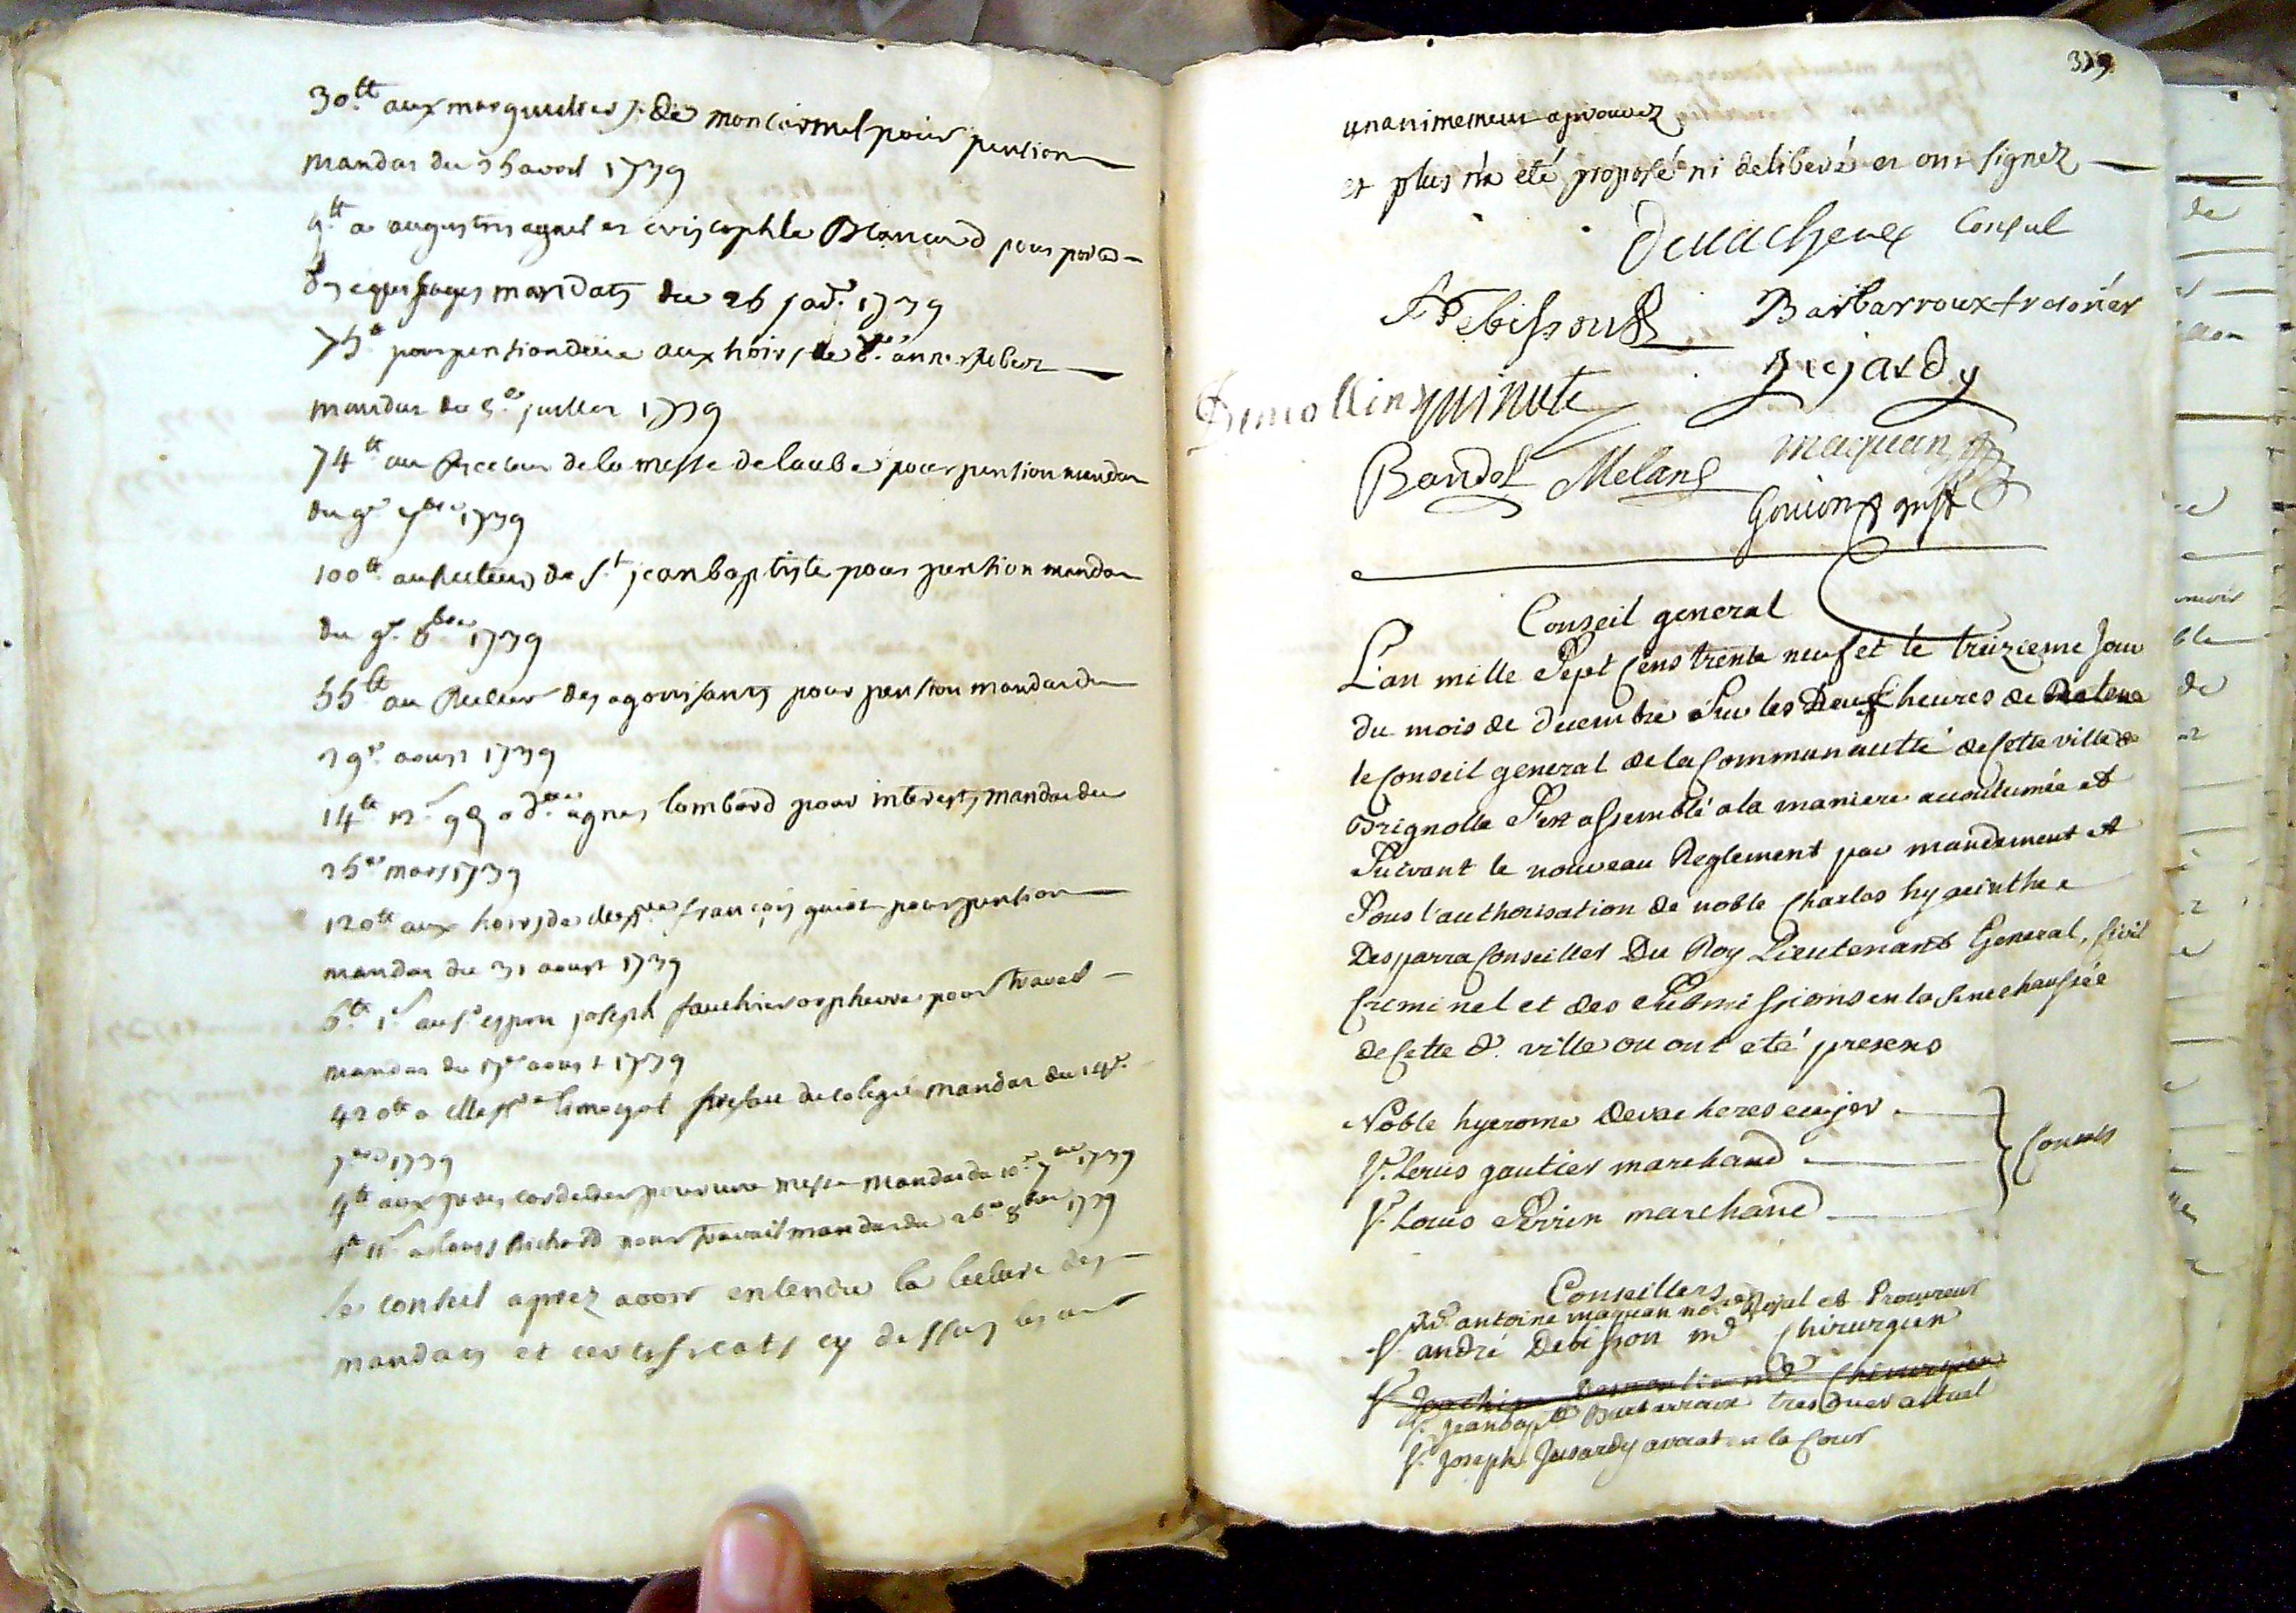 30.tt aux marguilliers de moncarmel pour pention
mandat du 25 avril 1739
9.tt a augustin agnel et cristophle Blancard pour port de
des equipages mandats du 26 janr. 1739
75.tt pour pention deüe aux hoirs de d.lle anne
mandat du 5.e juillet 1739
74.tt au Recteur de la messe de laube pour pention mandat
du 9.e 7bre 1739
100.tt au Recteur de St jean baptiste pour pention mandat
du 9.e 8bre 1739
55.tt au Recteur des agonisants pour pention mandat du
29.e aoust 1739
14.tt 12.s 9 a d.lle agnes lombard pour interests mandat du
26.e mars 1739
120.tt aux hoirs de messre françois guion pour pention
mandat du 31 aoust 1739
6.tt 1.s au s.r joseph fauchier orphevre pour travail
mandat du 17.e aoust 1739
420.tt a Messre du colege mandat du 14.e
7bre 1739
4.tt aux peres cordeliers pour une messe mandat du 10.e 7bre 1739
4.tt 11.s a louis Richard pour travail mandat du 26.e 8bre 1739
le conseil aprez avoir entendu la lecture des
mandats et certificats cy dessus les a
unanimement aprouvez
et plus n'a eté proposé ni deliberé et ont signez
Devacheres Consul
Debisson Barbarroux tresorier
Demollins minute Jujardy
Bandol Melan maquan
Gouion greff
Conseil general
L'an mille Sept Cens trente neuf et le treizieme Jour
du mois de decembre Sur les Deux heures de Relevé
le Conseil general de la Communautté de Cette ville de
Brignolle S'est assemblé a la maniere accoutumée et
Suivant le nouveau Reglement par mandement et
Sous l'authorisation de noble Charles hyacinthe
Desparra Conseiller Du Roy Lieutenant General, Civil
Criminel et des Submissions en la Senechaussée
de Cette d. ville ou ont eté presens
Noble hyerome devacheres ecuyer
Sr. Louis gautier marchand
Sr. Louis Perrin marchand
Consuls
Conseillers
Me. antoine maquan nore Royal et Procureur
Sr. andré Debisson me Chirurgien
Sr. Joachim Demoulin me Chirurgien
Sr. Jean bapte Barbarroux tresorier actuel
Sr. Joseph Jujardy avocat en la Cour